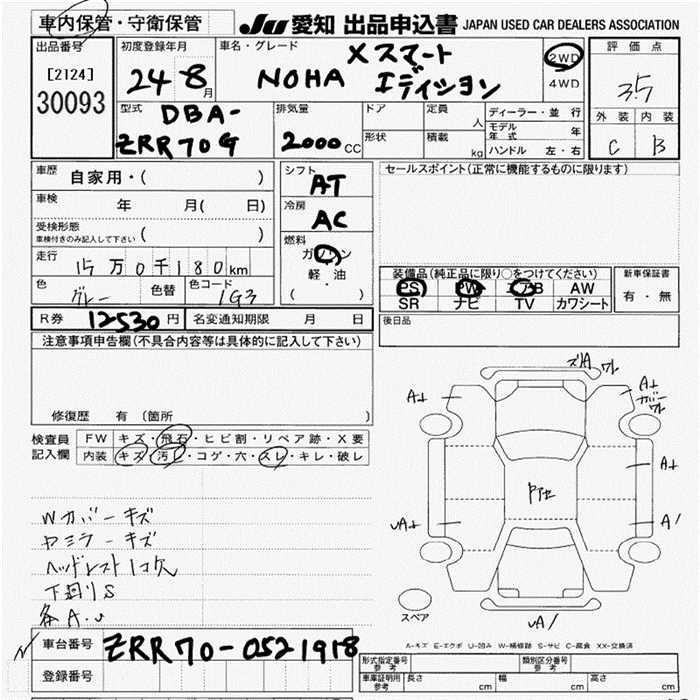 車内保管・守衛保管
JU 愛知 出品申込書 JAPAN USED CAR DEALERS ASSOCIATION
出品番号
[2124]
30093
初度登録年月
24 8月
車名・グレード
NOHA Xスマート
エディション
2WD
4WD
評価点
3.5
外装 内装
C B
型式
DBA-
ZRR70G
排気量
2000cc
ドア
形状
定員 人
積載 kg
ディーラー・並行
モデル年式 年
ハンドル 左・右
車歴 自家用・( )
車検 年 月( 日)
受検形態
車検付きのみ記入して下さい ( )
走行 15万0千180km
色 グレー 色替 色コード 1G3
シフト
AT
冷房
AC
燃料
ガソリン
軽油
( ・ )
セールスポイント(正常に機能するものに限ります)
装備品(純正品に限り○をつけてください)
PS PW エアB AW
SR ナビ TV カワシート
新車保証書
有・無
後日品
R券 12530円 名変通知期限 月 日
注意事項申告欄(不具合内容等は具体的に記入して下さい)
修復歴 有 (箇所 )
検査員
記入欄
FW キズ・飛石・ヒビ割・リペア跡・X要
内装 キズ・汚レ・コゲ・穴・スレ・キレ・破レ
Wカバーキズ
ヤミラーキズ
ヘッドレスト1コ欠
下廻りS
各A.U
ズレA ワレ
A+
A+
カバー
ワレ
A+
UA+
A1
UA1
スペア
A-キズ E-エクボ U-凹み W-補修跡 S-サビ C-腐食 XX-交換済
車台番号 ZRR70-0521918
登録番号
形式指定番号
参考
類別区分番号
参考
車庫証明用
参考
長さ cm 幅 cm 高さ cm